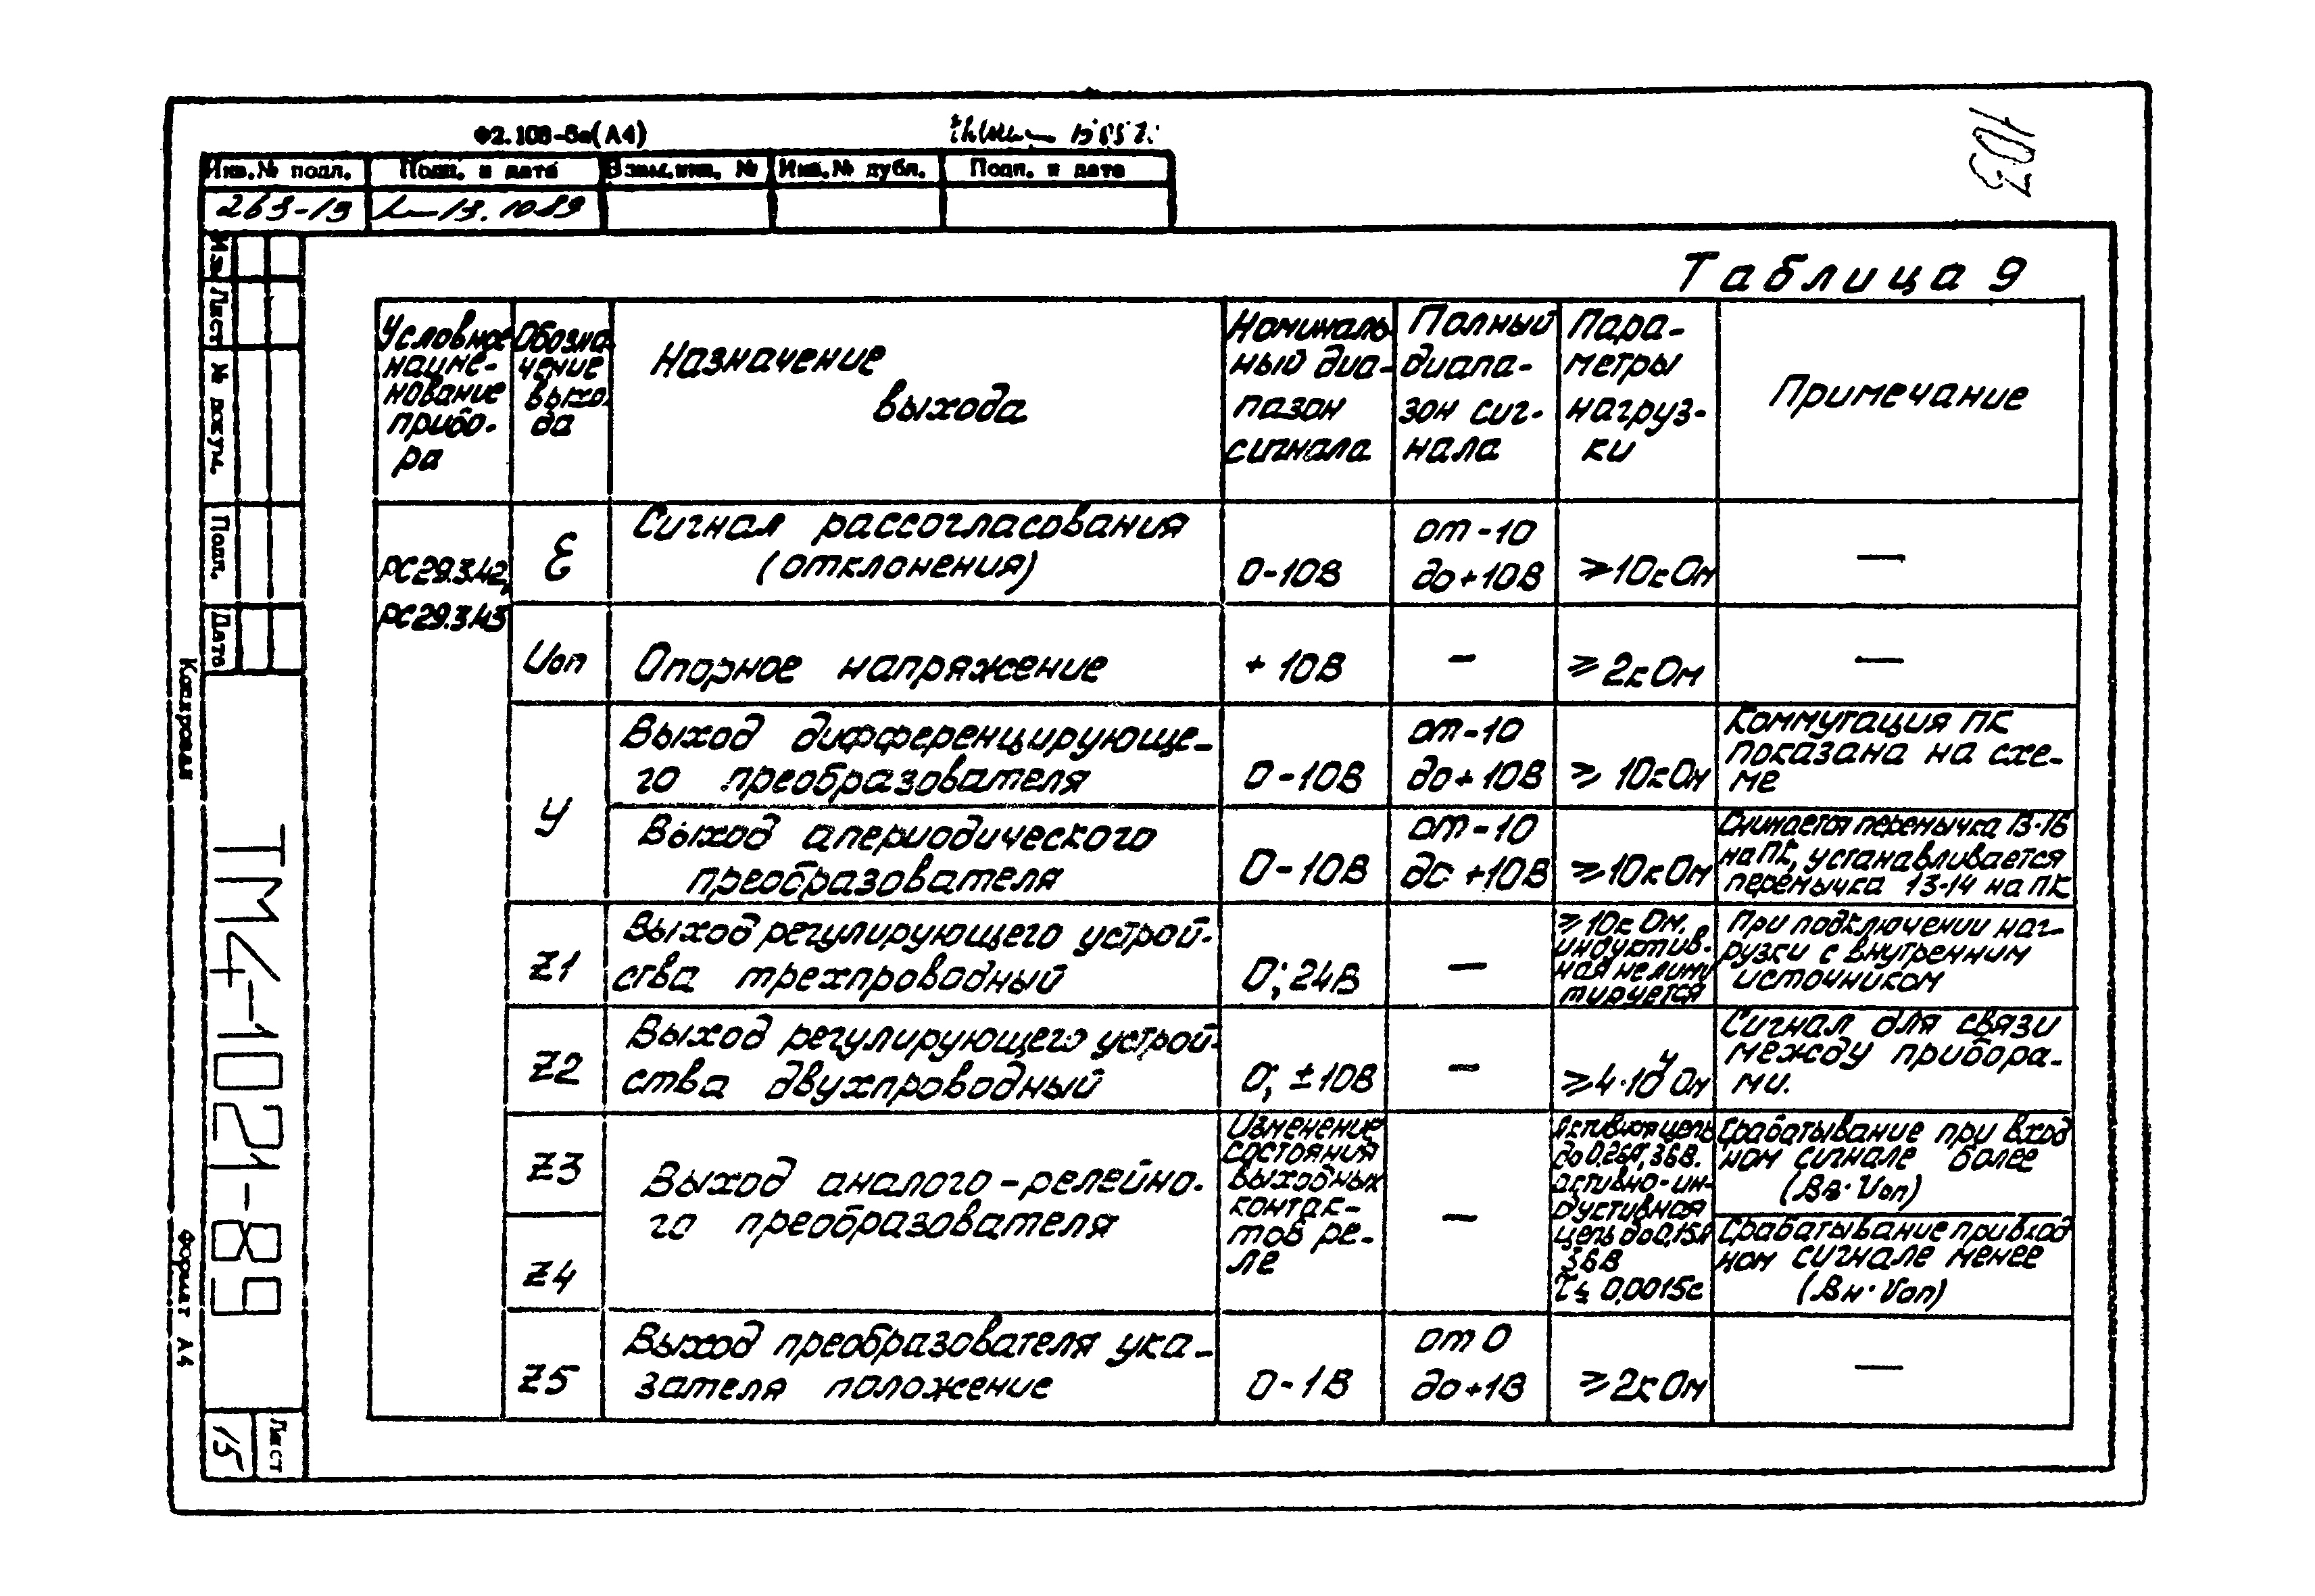 Ф2.108-5а(А4)
103
Инв.№ подл.
Подп. и дата
Взам.инв. №
Инв.№ дубл.
Подп. и дата
263-19
13.10.89
Изм
Лист
№ докум.
Подп.
Дата
Копировал
ТМ4-1021-89
Формат А4
Лист
15
Таблица 9
Условное
наиме-
нование
прибо-
ра
Обозна
чение
выхо-
да
Назначение
выхода
Номиналь
ный диа-
пазон
сигнала
Полный
диапа-
зон сиг-
нала
Пара-
метры
нагруз-
ки
Примечание
РС29.3.42,
РС29.3.43
Ɛ
Сигнал рассогласования
(отклонения)
0-10В
от-10
до+10В
≥10кОм
—
Uоп
Опорное напряжение
+10В
—
≥2кОм
—
У
Выход дифференцирующе-
го преобразователя
0-10В
от-10
до+10В
≥10кОм
Коммутация ПК
показана на схе-
ме
Выход апериодического
преобразователя
0-10В
от-10
до +10В
≥10кОм
Снимается перемычка 13-15
на ПК, устанавливается
перемычка 13-14 на ПК
Z1
Выход регулирующего устрой-
ства трехпроводный
0; 24В
—
≥10к Ом.
индуктив-
ная не лими
тируется
При подключении наг-
рузки с внутренним
источником
Z2
Выход регулирующего устрой-
ства двухпроводный
0; ±10В
—
≥4·10⁴ Ом
Сигнал для связи
между прибора-
ми.
Z3
Z4
Выход аналого-релейно-
го преобразователя
Изменение
состояния
выходных
контак-
тов ре-
ле
—
Активная цепь
до 0.25А, 36В.
активно-ин-
дуктивная
цепь до 0,15А
36В
τ≤ 0,0015с
Срабатывание при вход
ном сигнале более
(Вв·Uоп)
Срабатывание при вход
ном сигнале менее
(Вн·Uоп)
Z5
Выход преобразователя ука-
зателя положение
0-1В
от 0
до+1В
≥2кОм
—